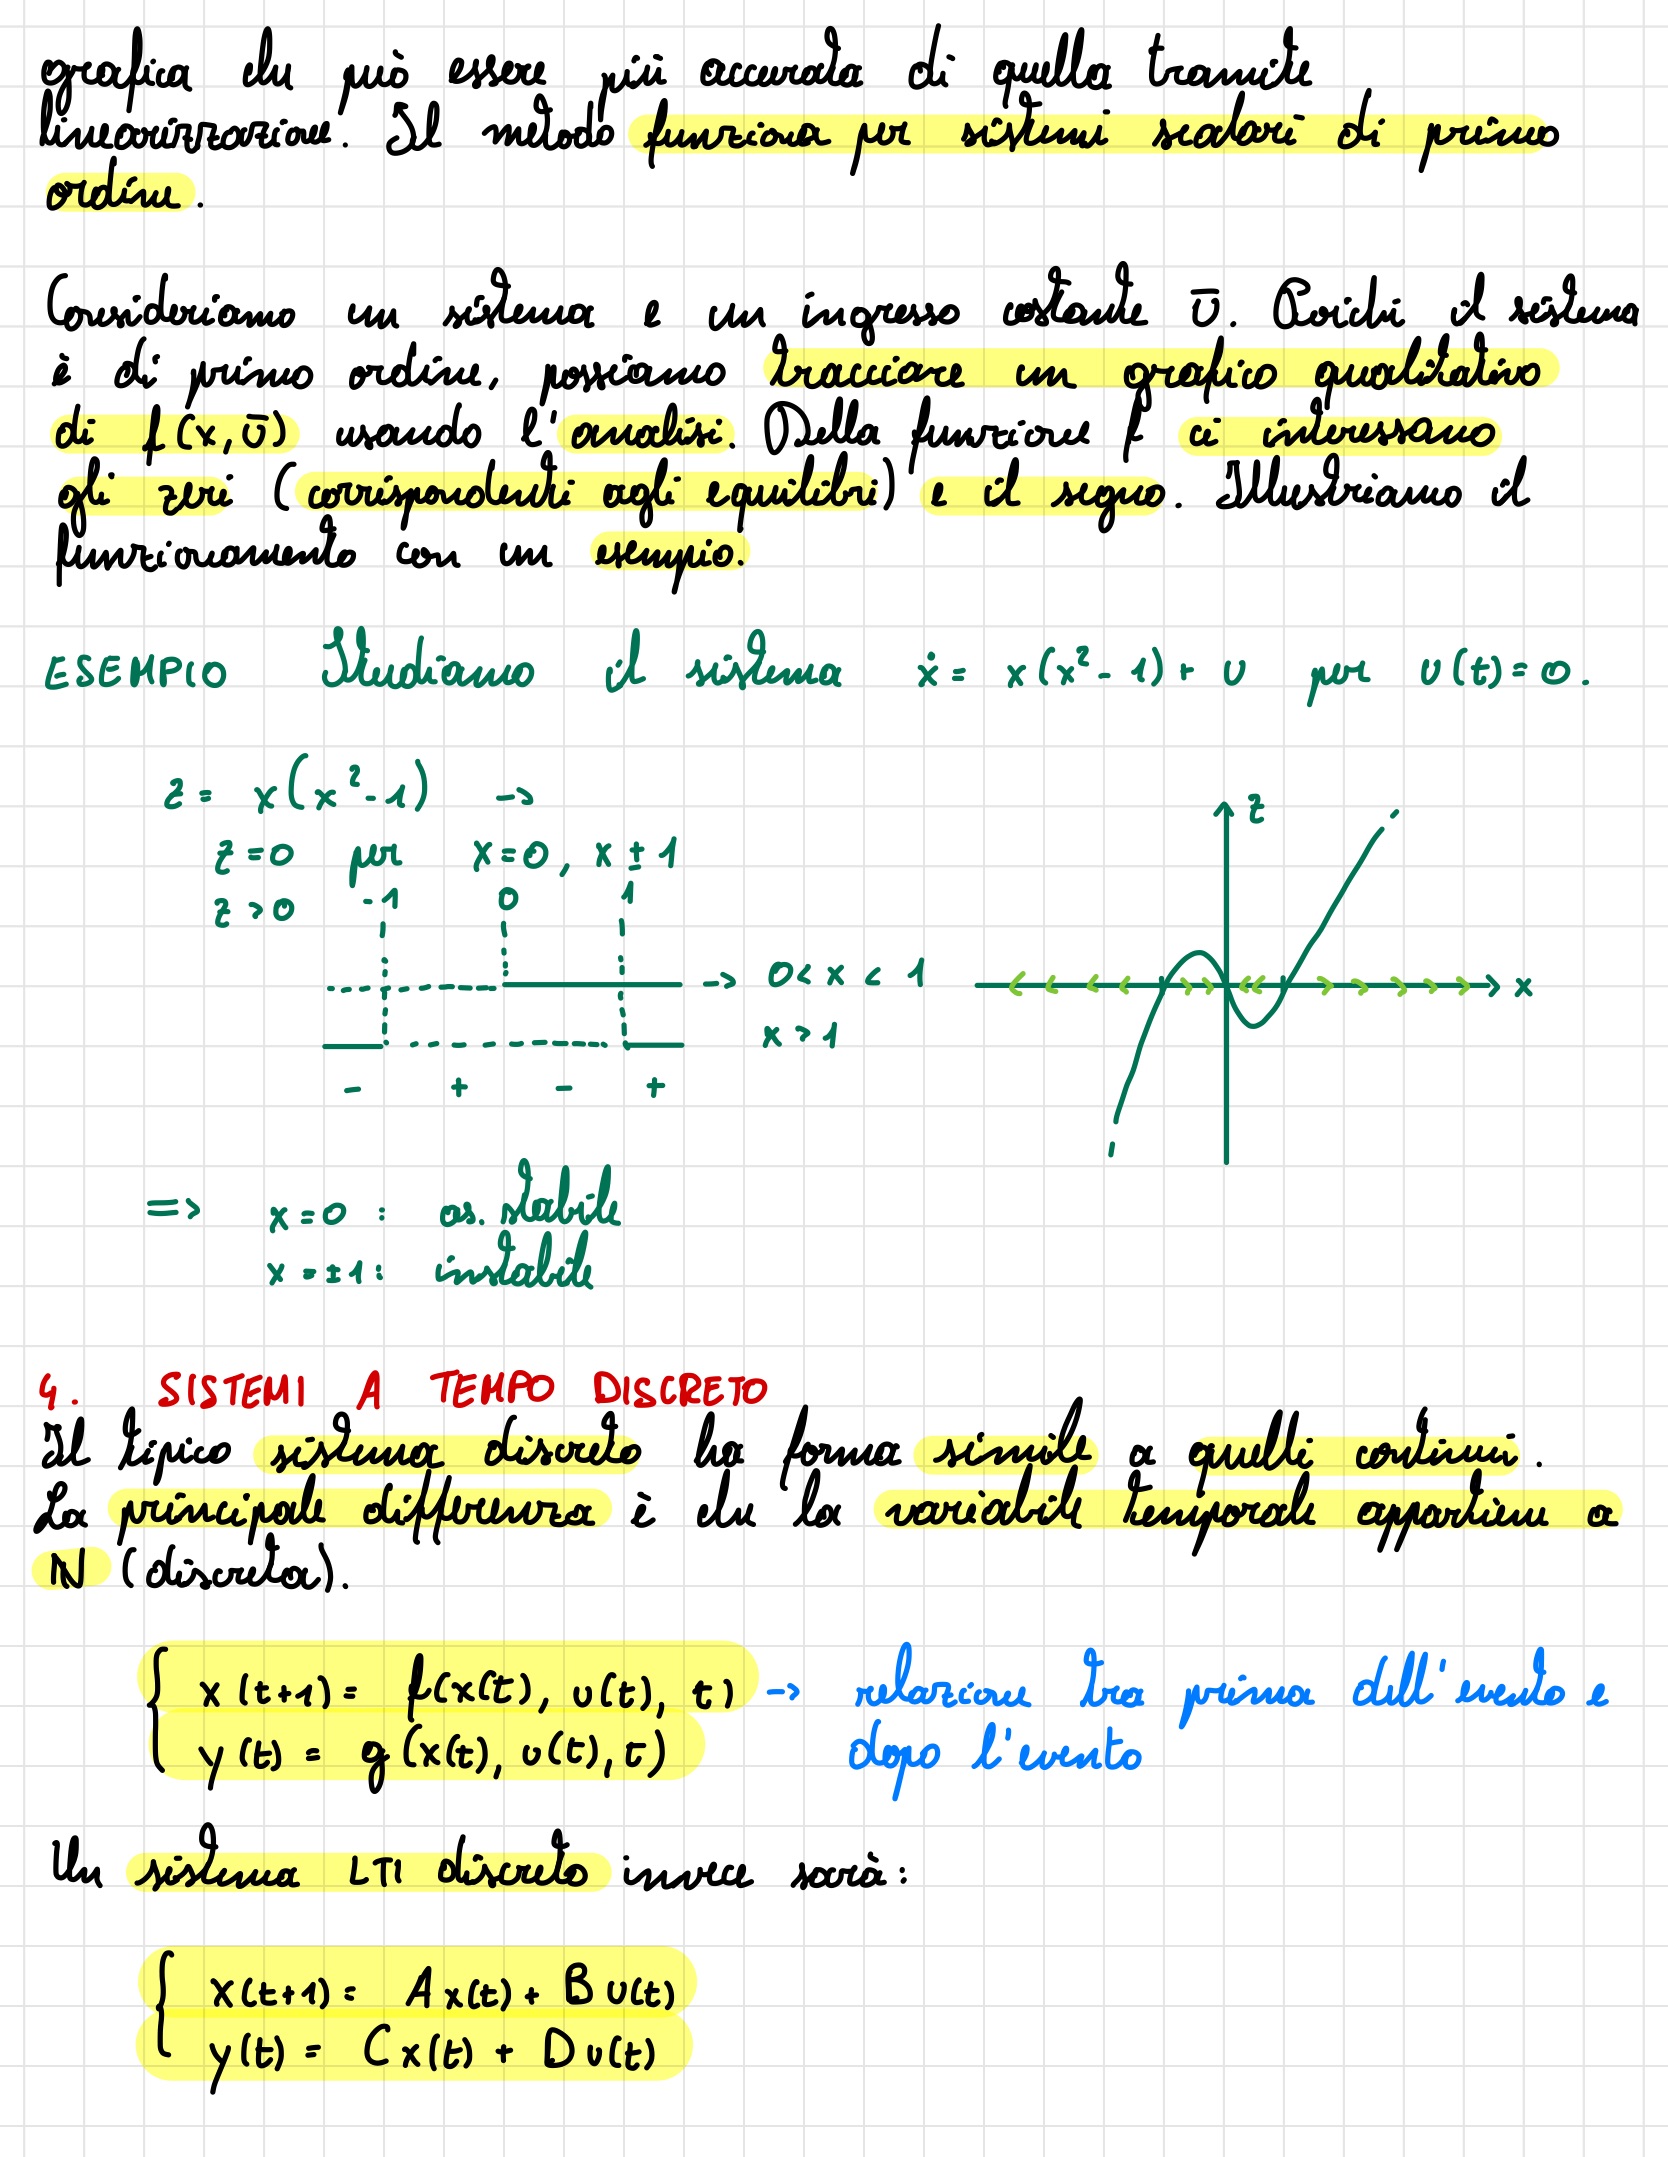 grafica che può essere più accurata di quella tramite
linearizzazione. Il metodo funziona per sistemi scalari di primo
ordine.
Consideriamo un sistema e un ingresso costante ū. Poiché il sistema
è di primo ordine, possiamo tracciare un grafico qualitativo
di f(x, ū) usando l'analisi. Della funzione f ci interessano
gli zeri (corrispondenti agli equilibri) e il segno. Illustriamo il
funzionamento con un esempio.
ESEMPIO Studiamo il sistema ẋ = x(x² - 1) + u per u(t) = 0.
z = x(x² - 1) ->
z = 0 per x = 0, x ± 1
z > 0 -1 0 1
-> 0 < x < 1
x > 1
- + - +
z
x
=> x = 0 : as. stabile
x = ±1 : instabile
4. SISTEMI A TEMPO DISCRETO
Il tipico sistema discreto ha forma simile a quelli continui.
La principale differenza è che la variabile temporale appartiene a
ℕ (discreta).
{ x(t+1) = f(x(t), u(t), t) -> relazione tra prima dell'evento e
y(t) = g(x(t), u(t), t) dopo l'evento
Un sistema LTI discreto invece sarà:
{ x(t+1) = A x(t) + B u(t)
y(t) = C x(t) + D u(t)